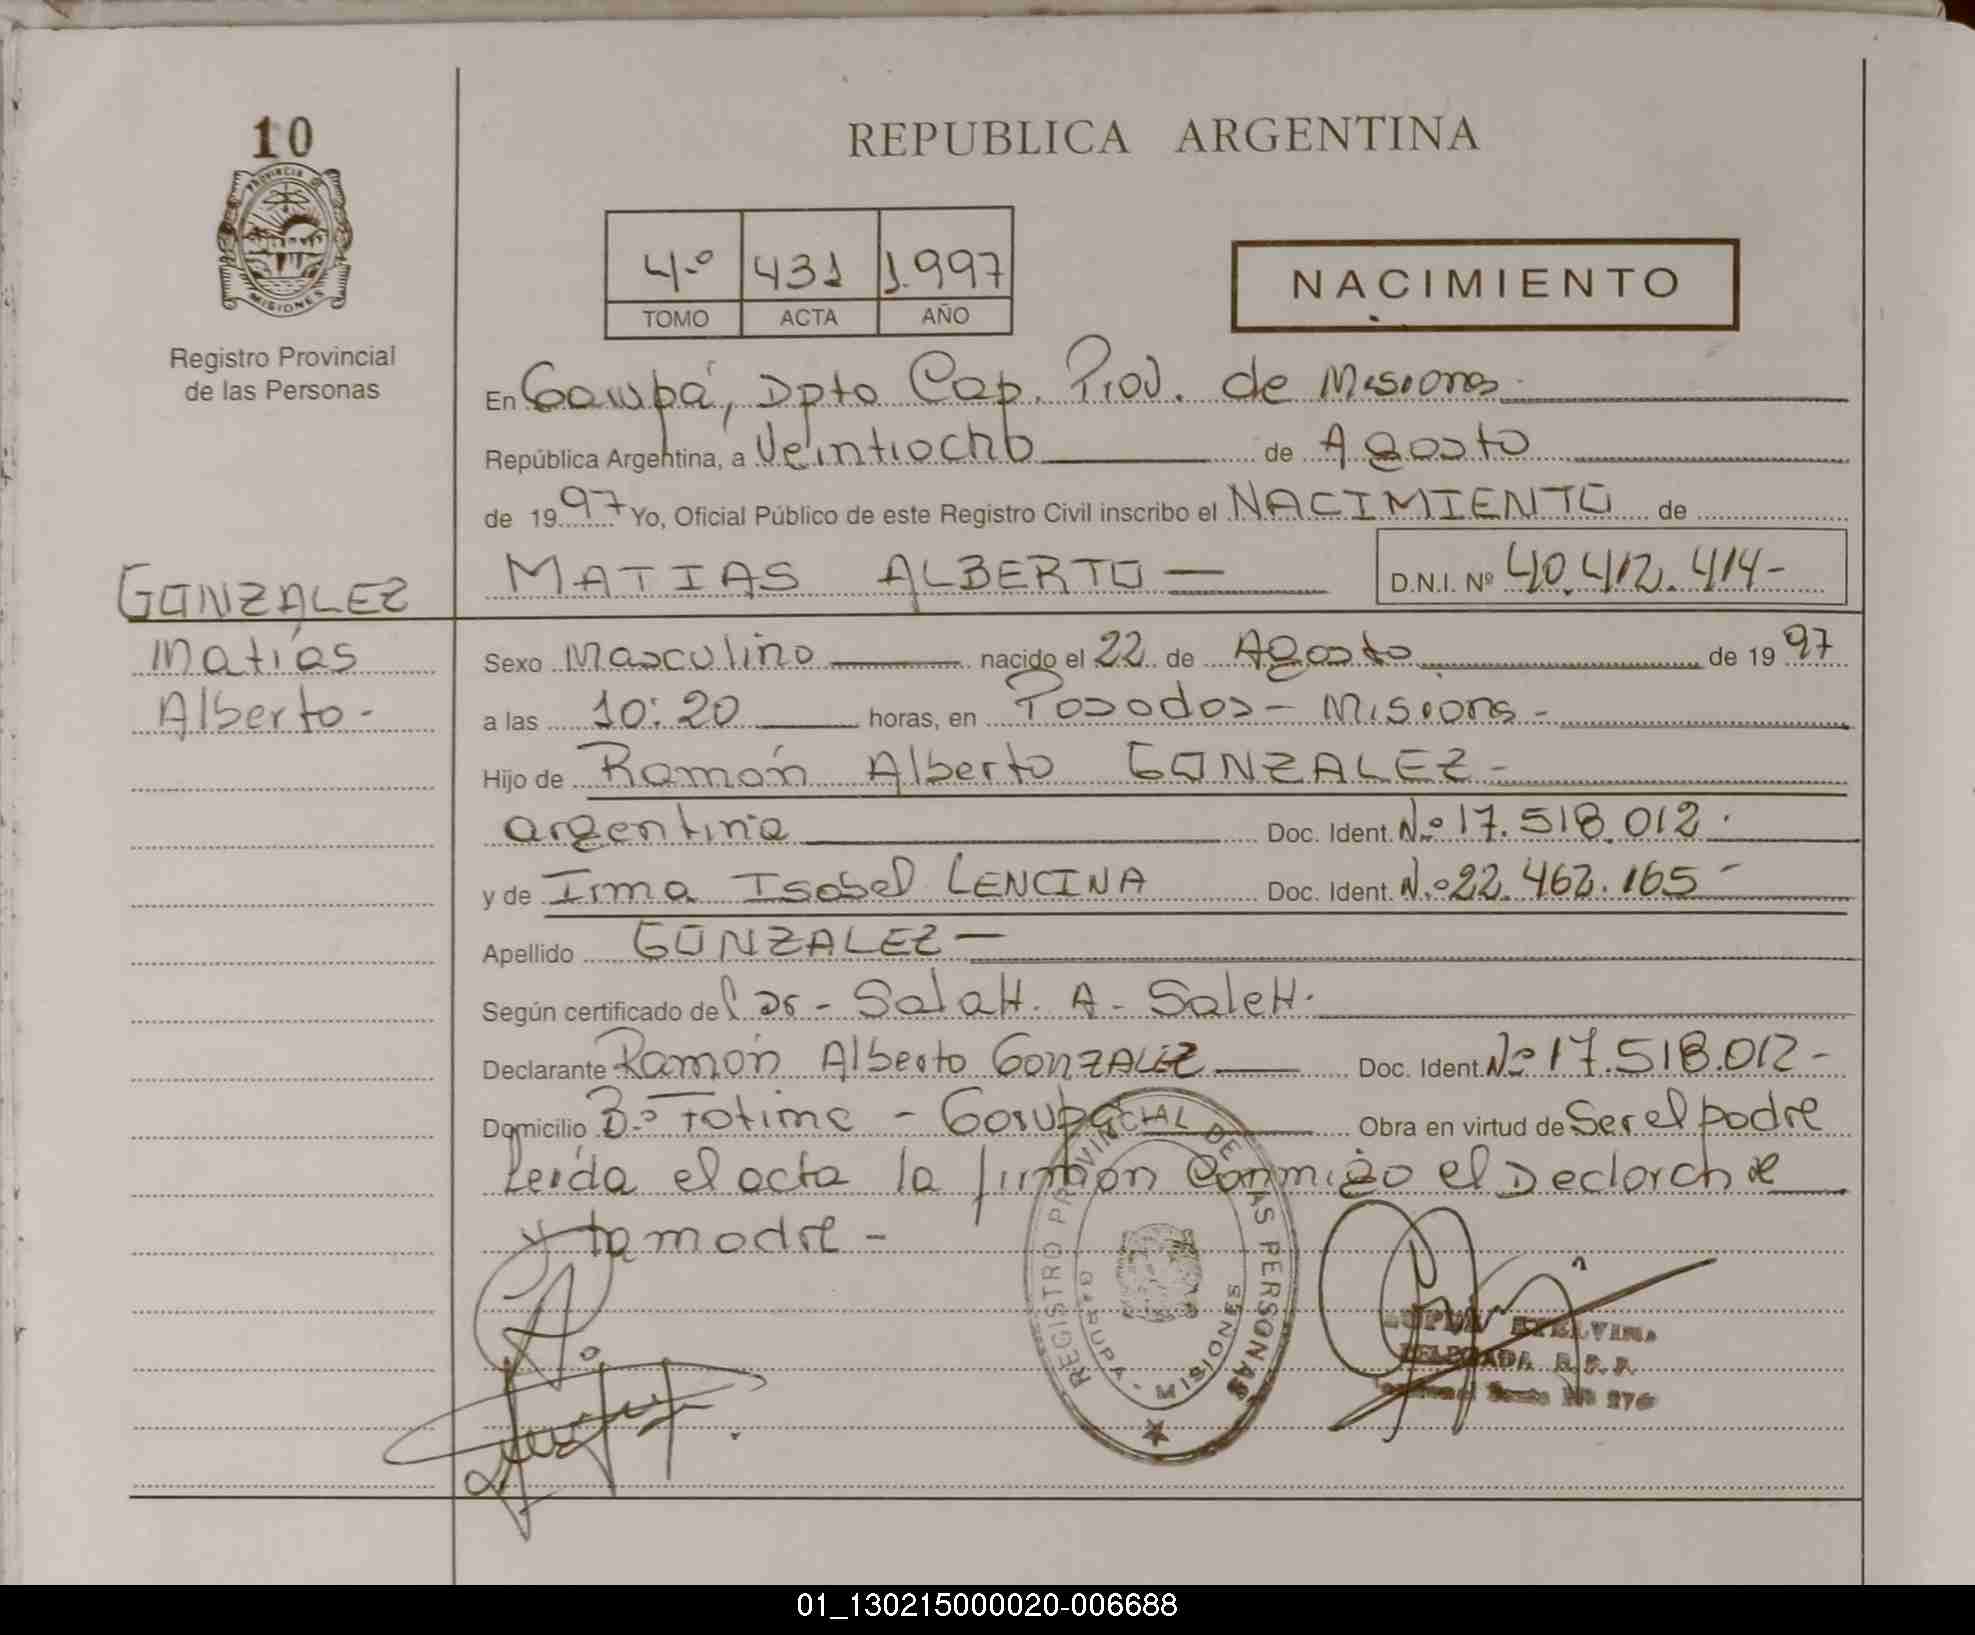 10
PROVINCIA DE
MISIONES
Registro Provincial
de las Personas
REPUBLICA ARGENTINA
4º 431 1.997
TOMO ACTA AÑO
NACIMIENTO
En Garupá, Dpto Cap. Prov. de Misiones.
República Argentina, a Veintiocho de Agosto
de 1997 Yo, Oficial Público de este Registro Civil inscribo el NACIMIENTO de
MATIAS ALBERTO — D.N.I. Nº 40.412.414-
GONZALEZ
Matías
Alberto-
Sexo Masculino nacido el 22 de Agosto de 1997
a las 10:20 horas, en Posadas - Misiones -
Hijo de Ramón Alberto GONZALEZ -
argentina Doc. Ident. N.º 17.518.012.
y de Irma Isabel LENCINA Doc. Ident. N.º 22.462.165-
Apellido GONZALEZ —
Según certificado del Dr - Salah. A - Saleh.
Declarante Ramón Alberto GONZALEZ Doc. Ident. Nº 17.518.012-
Domicilio B.º Fatima - Garupá Obra en virtud de Ser el padre
Leída el acta la firman conmigo el Declarante
y la madre -
REGISTRO PROVINCIAL DE LAS PERSONAS
GARUPA - MISIONES
DELEGADA R. P. P.
01_130215000020-006688